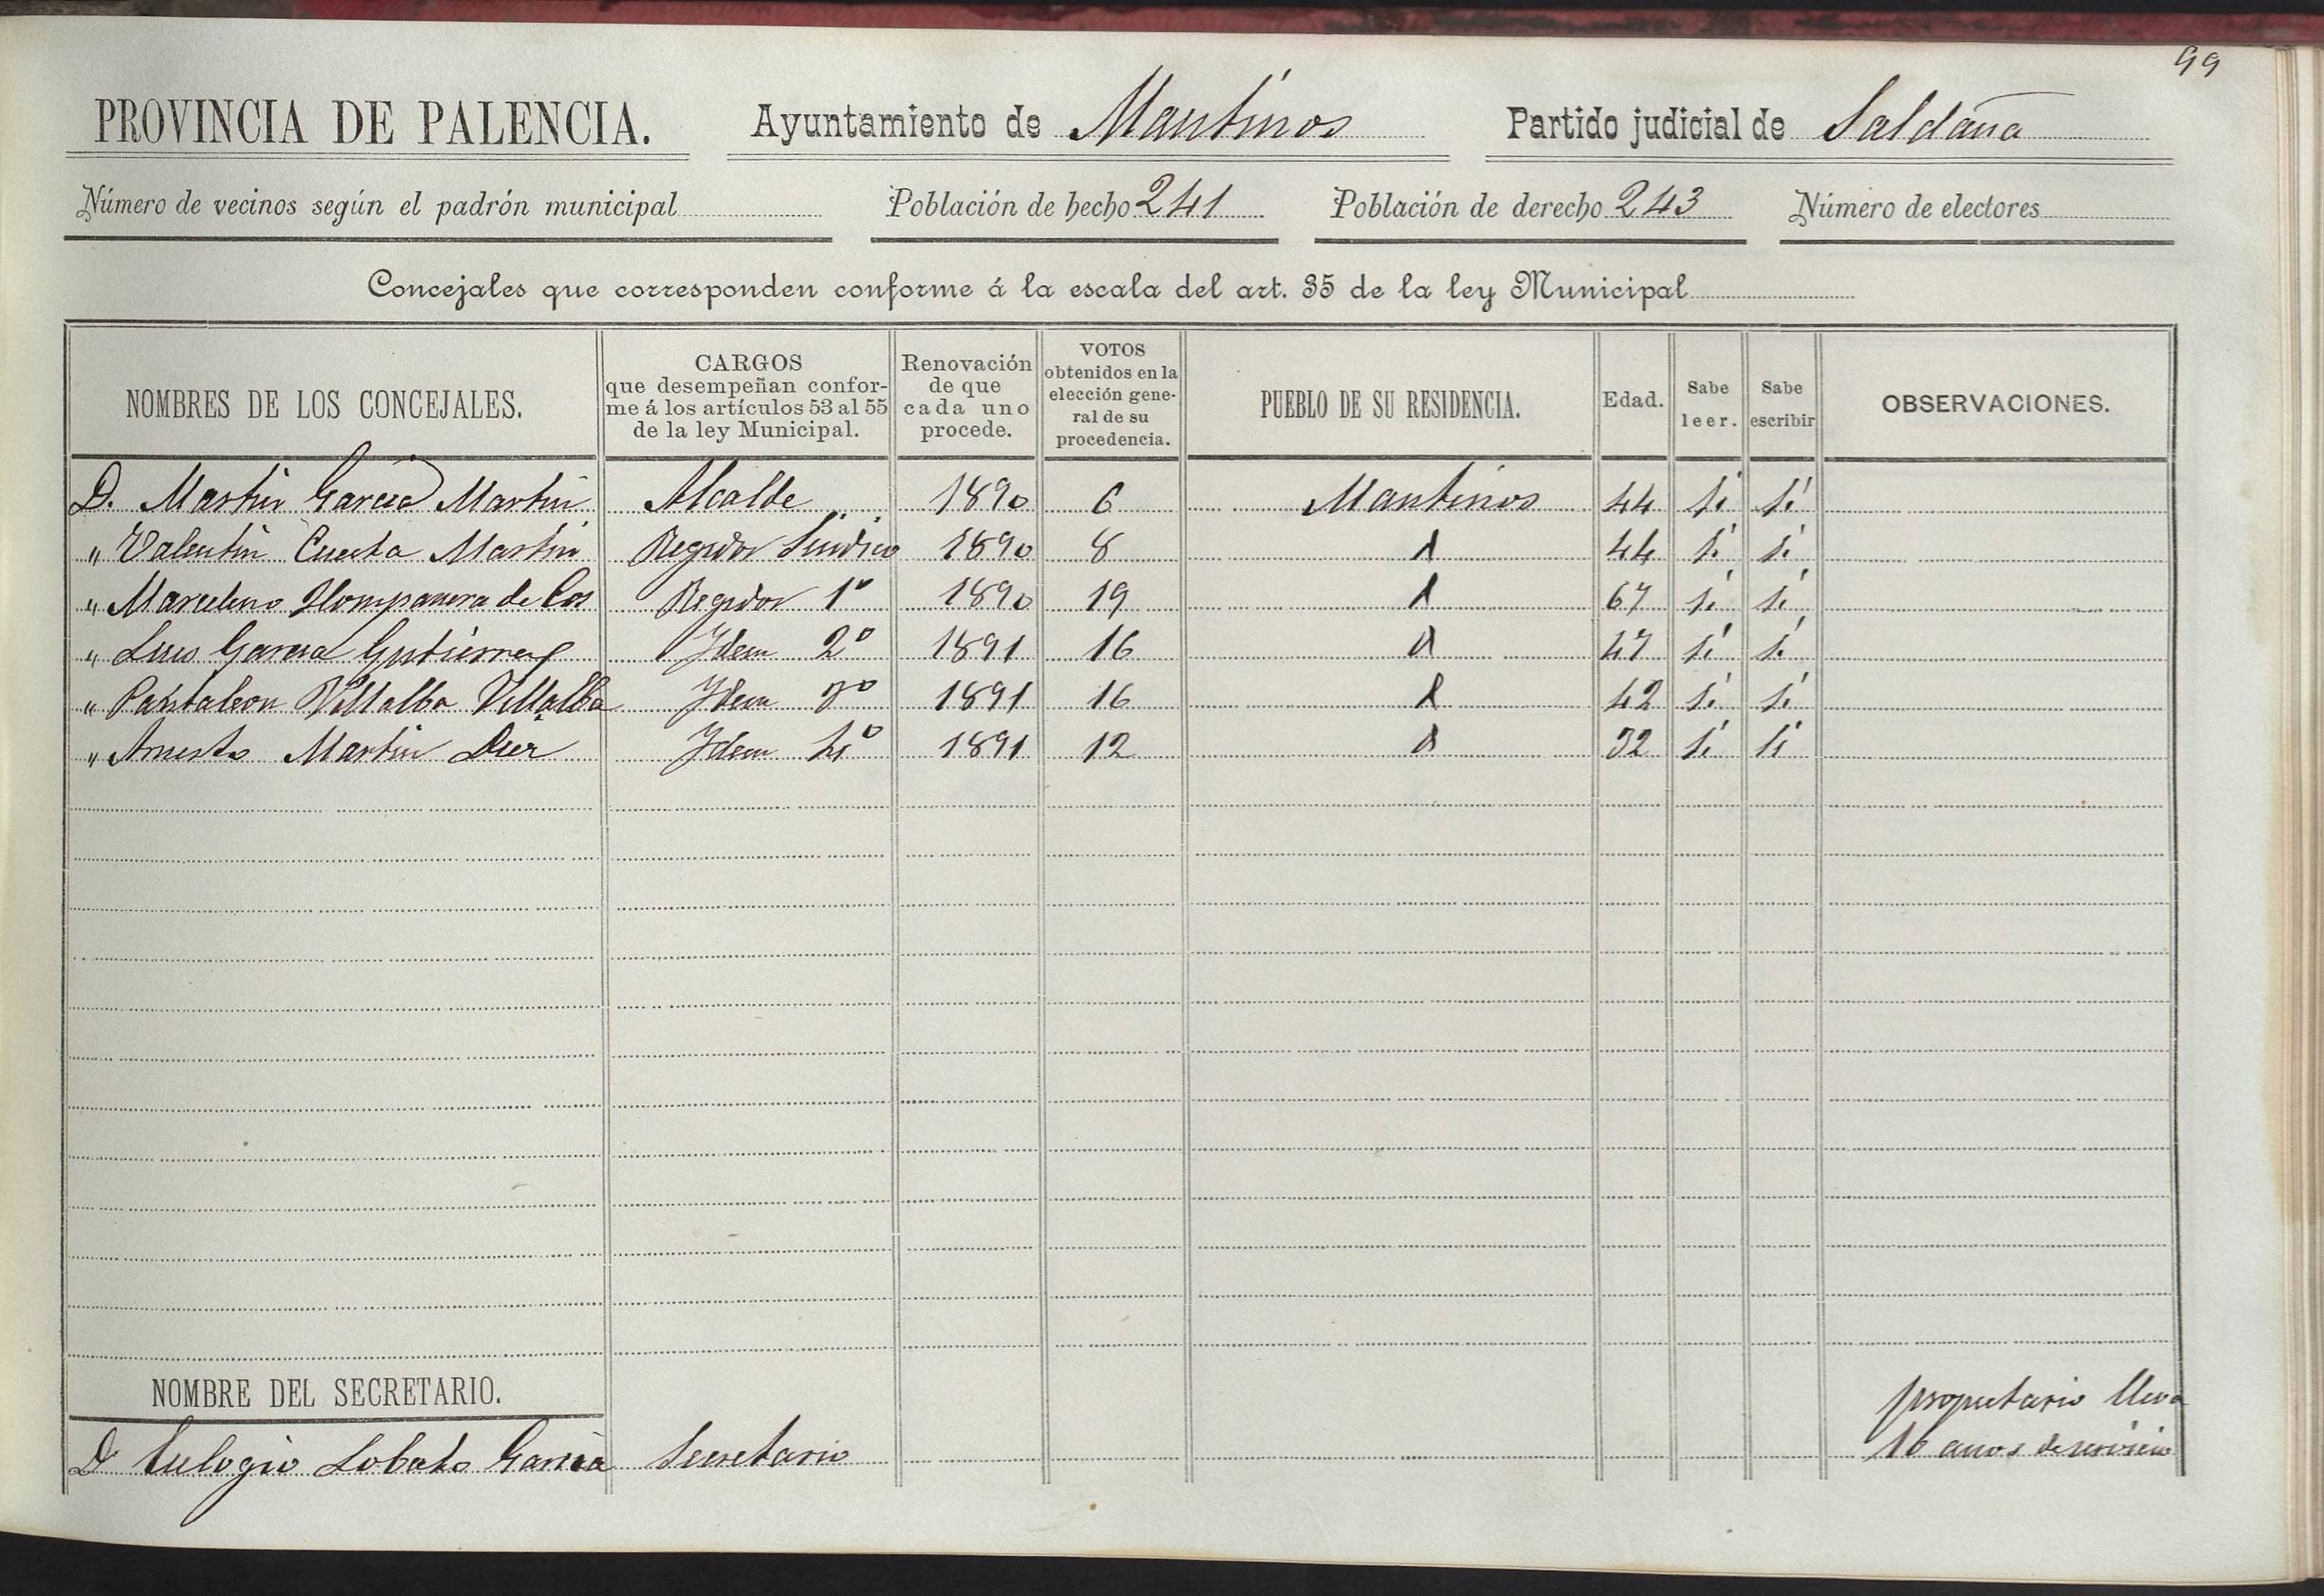 99
PROVINCIA DE PALENCIA. Ayuntamiento de Mantinos Partido judicial de Saldaña
Número de vecinos según el padrón municipal Población de hecho 241 Población de derecho 243 Número de electores
Concejales que corresponden conforme á la escala del art. 35 de la ley Municipal
NOMBRES DE LOS CONCEJALES. CARGOS que desempeñan confor-me á los artículos 53 al 55 de la ley Municipal. Renovación de que cada uno procede. VOTOS obtenidos en la elección gene-ral de su procedencia. PUEBLO DE SU RESIDENCIA. Edad. Sabe leer. Sabe escribir OBSERVACIONES.
D. Martin Garcia Martin Alcalde 1890 6 Mantinos 44 si si
" Valentin Cuesta Martin Regidor Sindico 1890 8 44 si si
" Marcelino de Cos Regidor 1º 1890 19 67 si si
" Luis Garcia Gutierrez Idem 2º 1891 16 47 si si
" Pantaleon Villalba Villalba Idem 3º 1891 16 42 si si
" Martin Diez Idem 4º 1891 12 32 si si
NOMBRE DEL SECRETARIO.
propietario lleva
D Eulogio Lobato Garcia Secretario 16 años de servicio